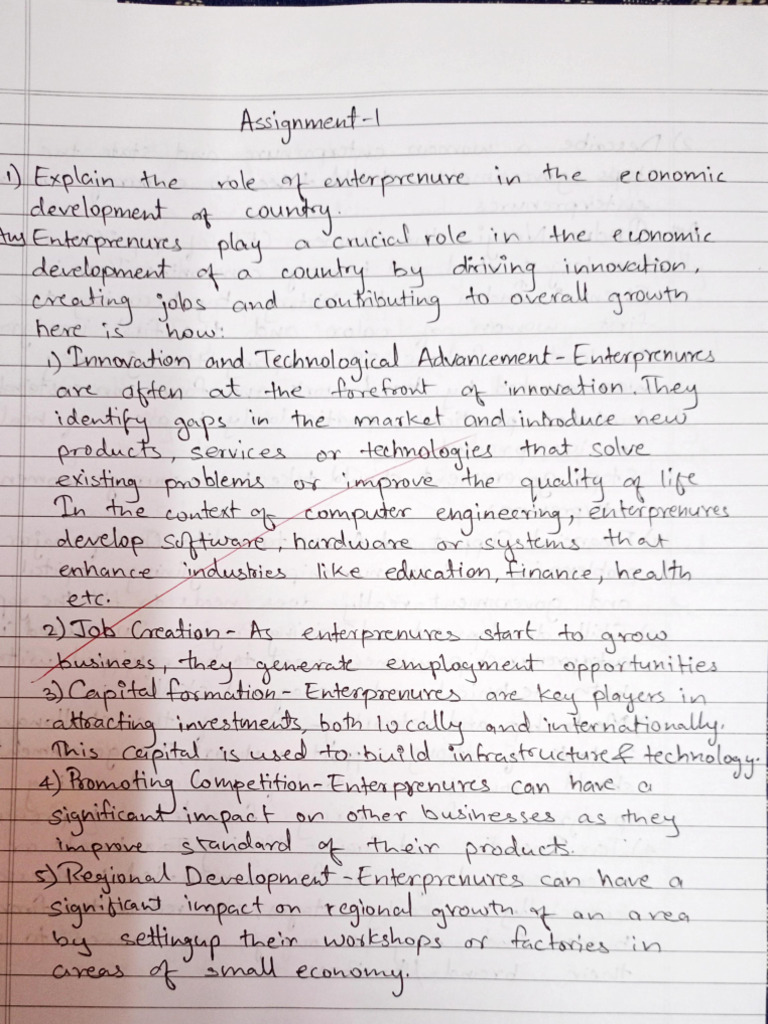 Assignment-1
1) Explain the role of enterprenure in the economic
development of country.
Enterprenures play a crucial role in the economic
development of a country by driving innovation,
creating jobs and contributing to overall growth
here is how:
1) Innovation and Technological Advancement - Enterprenures
are often at the forefront of innovation. They
identify gaps in the market and introduce new
products, services or technologies that solve
existing problems or improve the quality of life
In the context of computer engineering, enterprenures
develop software, hardware or systems that
enhance industries like education, finance, health
etc.
2) Job Creation - As enterprenures start to grow
business, they generate employment opportunities
3) Capital formation - Enterprenures are key players in
attracting investments, both locally and internationally.
This capital is used to build infrastructure & technology.
4) Promoting Competition - Enterprenures can have a
significant impact on other businesses as they
improve standard of their products.
5) Regional Development - Enterprenures can have a
significant impact on regional growth of an area
by setting up their workshops or factories in
areas of small economy.